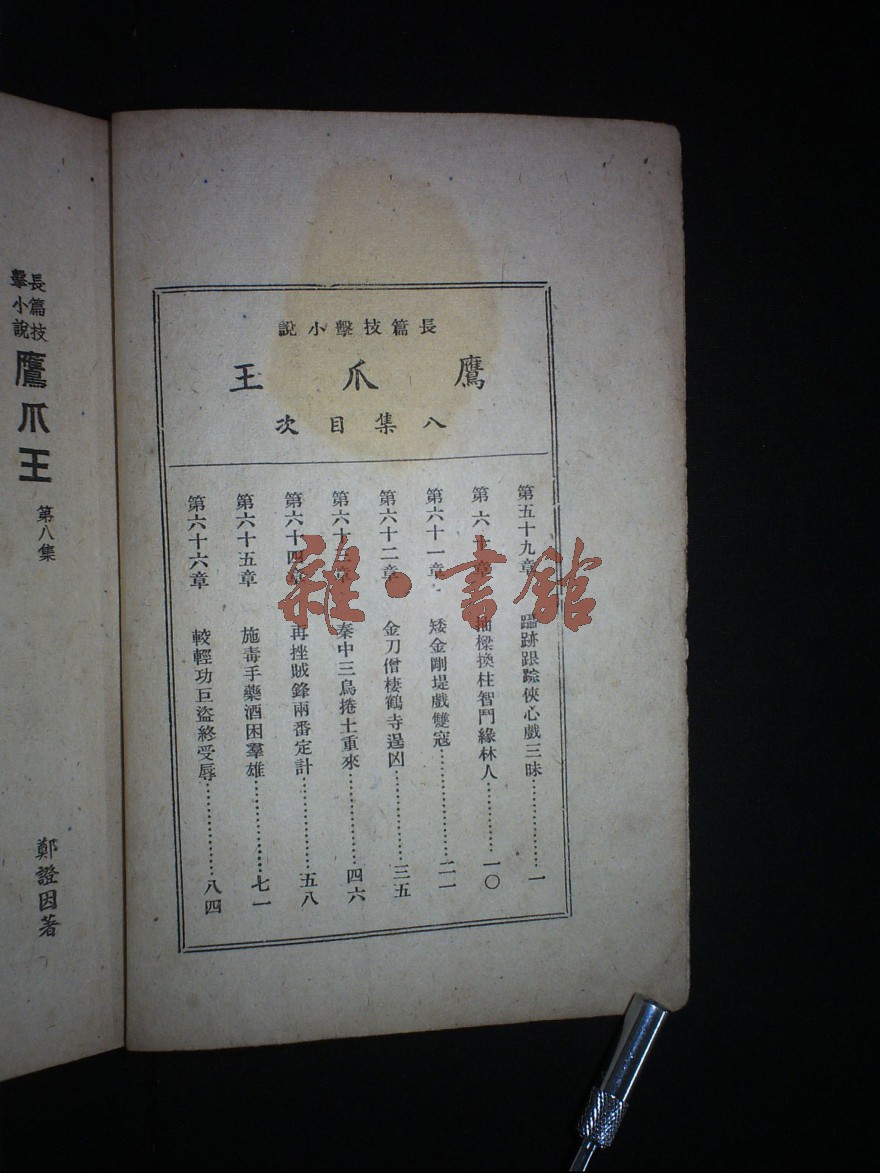 長篇技擊小說
鷹爪王
八集目次
第五十九章 躡跡跟踪俠心戲三昧……………一
第六十章 抽樑換柱智鬥綠林人……………一〇
第六十一章 矮金剛堤戲雙寇……………二一
第六十二章 金刀僧棲鶴寺逞凶……………三五
第六十三章 秦中三鳥捲土重來……………四六
第六十四章 再挫賊鋒兩番定計……………五八
第六十五章 施毒手藥酒困羣雄……………七一
第六十六章 較輕功巨盜終受辱……………八四
長篇技
擊小說
鷹爪王
第八集
鄭證因著
雜·書館